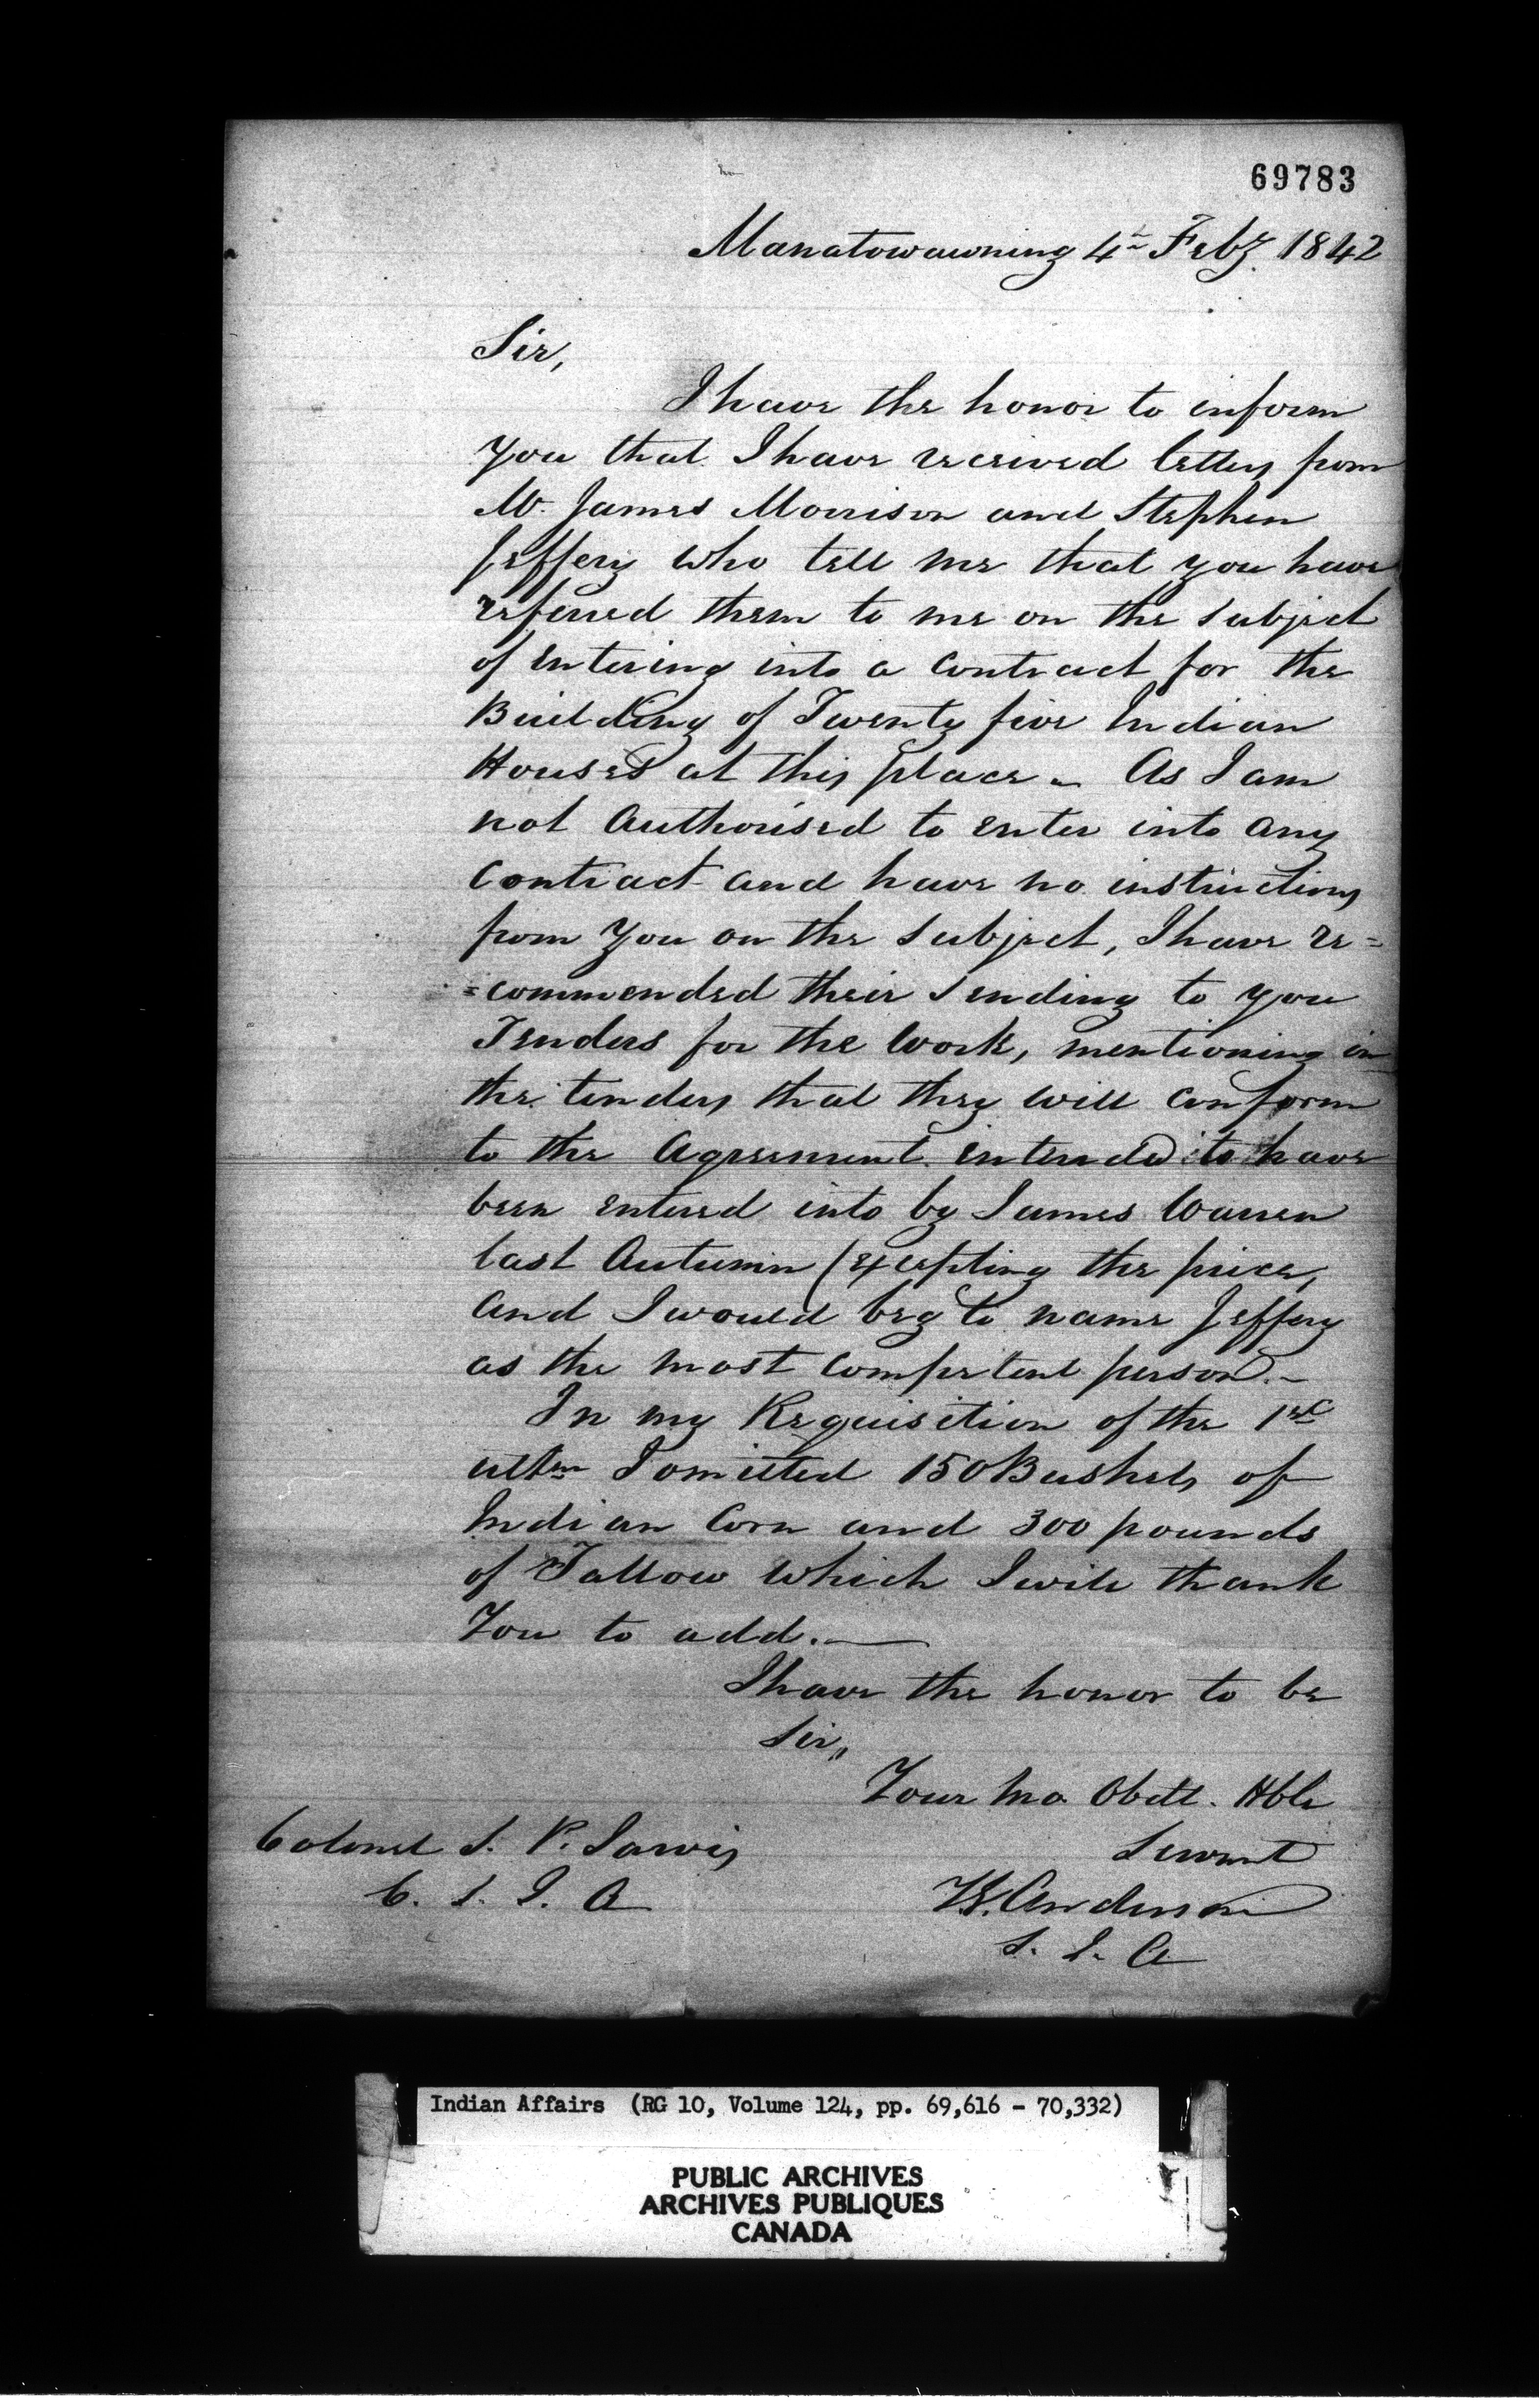 69783
Manatowawning 4th Feby. 1842
Sir,
I have the honor to inform
you that I have received letters from
Mr. James Morrison and Stephen
Jeffery who tell me that you have
referred them to me on the subject
of entering into a contract for the
Building of Twenty five Indian
Houses at this place – As I am
not Authorised to enter into any
Contract and have no instructions
from you on the subject, I have re=
=commended their sending to you
Tenders for the Work, mentioning in
the tenders that they will conform
to the Agreement intended to have
been entered into by James Warren
last Autumn (excepting the price,
and I would beg to name Jeffery
as the most competent person. –
In my Requisition of the 1st
ultmo I omitted 150 Bushels of
Indian Corn and 300 pounds
of Tallow which I will thank
You to add. —
I have the honor to be
Sir,,
Your mo Obdt. Hble
Servant
Colonel S. P. Jarvis
C. S. I. A
T.G. Anderson
S. I. A
Indian Affairs (RG 10, Volume 124, pp. 69,616 - 70,332)
PUBLIC ARCHIVES
ARCHIVES PUBLIQUES
CANADA